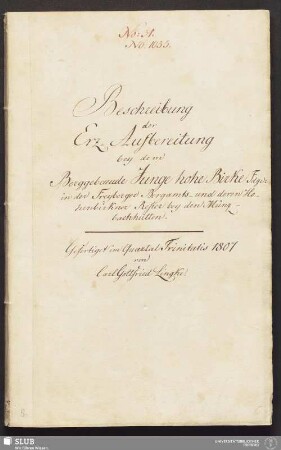 No: A.
No 1033.
Beschreibung
der
Erz Aufbereitung
bey dem
Berggebäude Junge hohe Birke Fdgr.
in der Freyberger Bergamts- und deren Ho-
henbirkner Refier bey den Münz-
bachhütten.
Gefertigt im Quartal Trinitatis 1807
von
Carl Gottfried
SLUB
Wir führen Wissen.